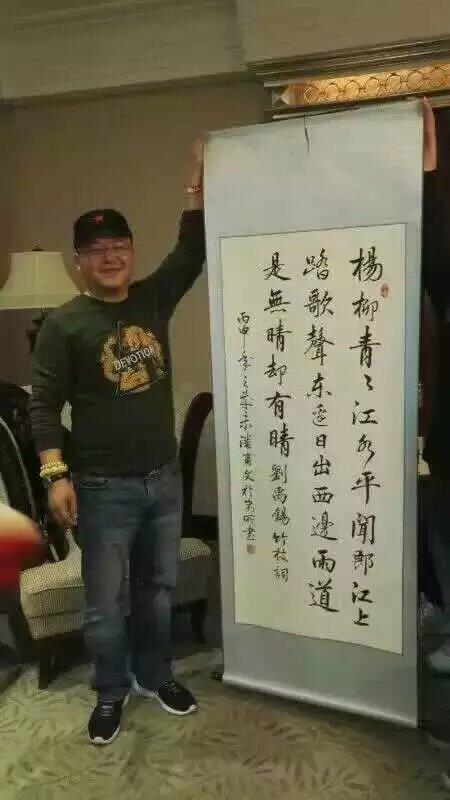 楊柳青〻江水平聞郎江上
踏歌聲东邊日出西邊雨道
是無晴却有晴 劉禹錫竹枝詞
丙申年之
DEVOTION